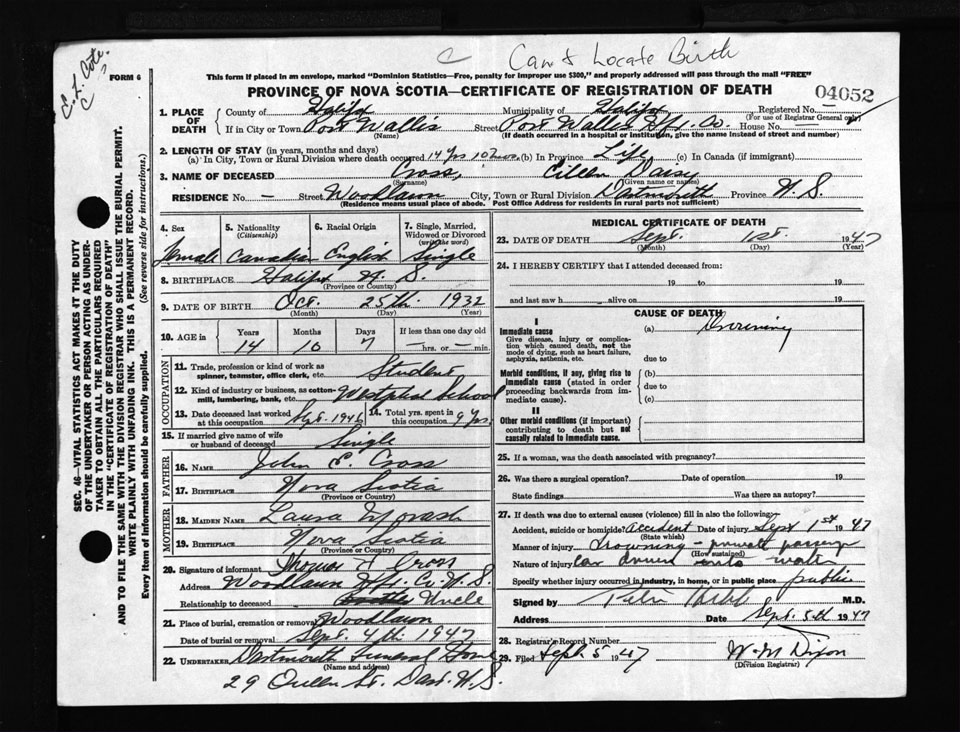 C Can't Locate Birth
E. L. Cote.
FORM 6
This form if placed in an envelope, marked "Dominion Statistics—Free, penalty for improper use $300," and properly addressed will pass through the mail "FREE"
PROVINCE OF NOVA SCOTIA—CERTIFICATE OF REGISTRATION OF DEATH
04052
1. PLACE OF DEATH County of Halifax Municipality of Halifax Registered No. —
(For use of Registrar General only)
If in City or Town Port Wallis Street Port Wallis Hfx. Co. House No. —
(Name) (If death occurred in a hospital or institution, give the name instead of street and number)
2. LENGTH OF STAY (in years, months and days)
(a) In City, Town or Rural Division where death occurred 14 yrs 10 mos. (b) In Province Life (c) In Canada (if immigrant)
3. NAME OF DECEASED Cross, Eileen Daisy
(Surname) (Given name or names)
RESIDENCE No. — Street Woodlawn City, Town or Rural Division Dartmouth Province N. S.
(Residence means usual place of abode. Post Office Address for residents in rural parts not sufficient)
4. Sex 5. Nationality (Citizenship) 6. Racial Origin 7. Single, Married, Widowed or Divorced (write the word)
Female Canadian English Single
8. BIRTHPLACE Halifax N. S.
(Province or Country)
9. DATE OF BIRTH Oct. 25th 1932
(Month) (Day) (Year)
10. AGE in Years Months Days If less than one day old
14 10 7 — hrs. or — min.
OCCUPATION
11. Trade, profession or kind of work as spinner, teamster, office clerk, etc. Student
12. Kind of industry or business, as cotton-mill, lumbering, bank, etc. Westphal School
13. Date deceased last worked at this occupation Sept. 1946 14. Total yrs. spent in this occupation 9 yrs.
15. If married give name of wife or husband of deceased Single
FATHER
16. NAME John E. Cross
17. BIRTHPLACE Nova Scotia
(Province or Country)
MOTHER
18. MAIDEN NAME Laura Morash
19. BIRTHPLACE Nova Scotia
(Province or Country)
20. Signature of informant Thomas H Cross
Address Woodlawn Hfx. Co. N. S.
Relationship to deceased Uncle
21. Place of burial, cremation or removal Woodlawn
Date of burial or removal Sept. 4th 1947
22. UNDERTAKER Dartmouth Funeral Home
(Name and address)
29 Queen St. Dart. N. S.
MEDICAL CERTIFICATE OF DEATH
23. DATE OF DEATH Sept. 1st. 1947
(Month) (Day) (Year)
24. I HEREBY CERTIFY that I attended deceased from:
19 to 19
and last saw h alive on 19
CAUSE OF DEATH
I
Immediate cause (a) Drowning
Give disease, injury or complication which caused death, not the mode of dying, such as heart failure, asphyxia, asthenia, etc. due to
Morbid conditions, if any, giving rise to immediate cause (stated in order proceeding backwards from immediate cause). (b) due to (c)
II
Other morbid conditions (if important) contributing to death but not causally related to immediate cause.
25. If a woman, was the death associated with pregnancy?
26. Was there a surgical operation? Date of operation 19
State findings Was there an autopsy?
27. If death was due to external causes (violence) fill in also the following:
Accident, suicide or homicide? accident Date of injury Sept 1st 1947
(State which)
Manner of injury Drowning – private passgr
(How sustained)
Nature of injury Car driven into water
Specify whether injury occurred in industry, in home, or in public place public
Signed by M.D.
Address Date Sept. 5th 1947
28. Registrar's Record Number
29. Filed Sept. 5 1947 W. M Dixon
(Division Registrar)
SEC. 46—VITAL STATISTICS ACT MAKES IT THE DUTY
OF THE UNDERTAKER OR PERSON ACTING AS UNDER-
TAKER TO OBTAIN ALL THE PARTICULARS REQUIRED
IN THE "CERTIFICATE OF REGISTRATION OF DEATH"
AND TO FILE THE SAME WITH THE DIVISION REGISTRAR WHO SHALL ISSUE THE BURIAL PERMIT.
WRITE PLAINLY WITH UNFADING INK. THIS IS A PERMANENT RECORD.
Every item of information should be carefully supplied. (See reverse side for instructions.)